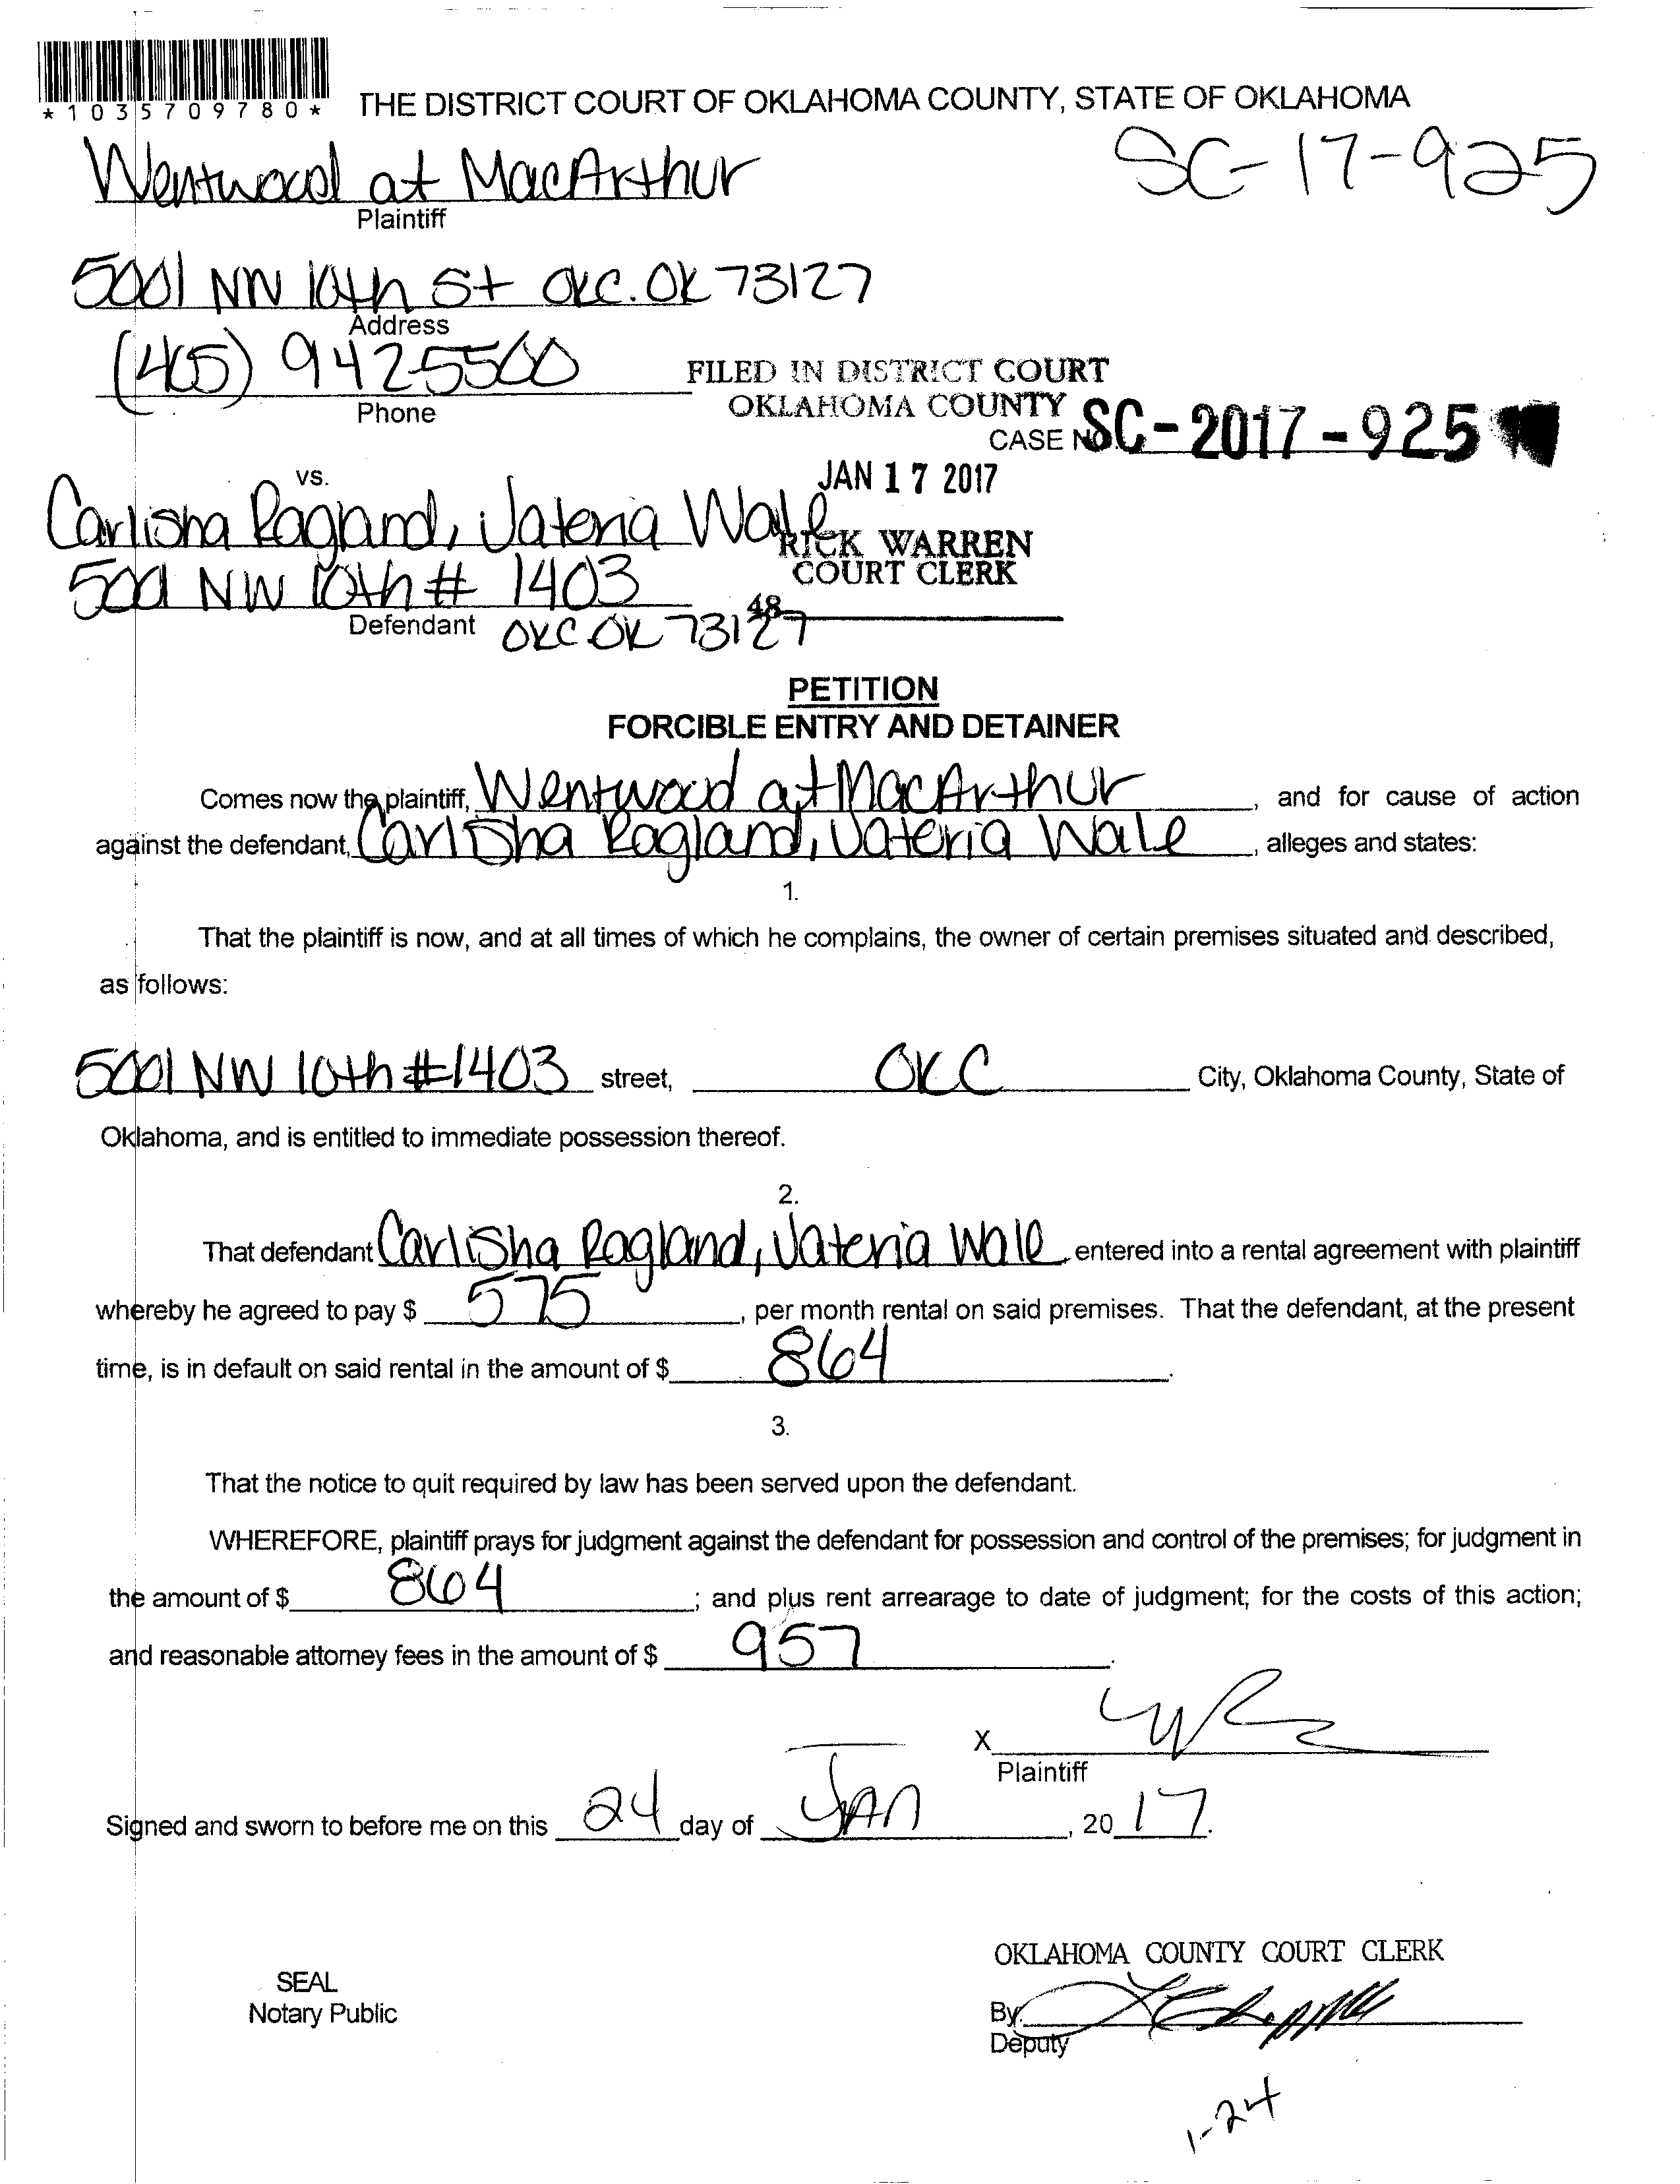 *1035709780*
THE DISTRICT COURT OF OKLAHOMA COUNTY, STATE OF OKLAHOMA
Wentwood at MacArthur
SC-17-925
Plaintiff
5001 NW 10th St OKC. OK 73127
Address
(405) 942 5500
FILED IN DISTRICT COURT
Phone
OKLAHOMA COUNTY
CASE NO. SC-2017-925
JAN 17 2017
vs.
Carlisha Ragland, Jateria Wale
RICK WARREN
COURT CLERK
5001 NW 10th # 1403
48
Defendant
OKC OK 73127
PETITION
FORCIBLE ENTRY AND DETAINER
Comes now the plaintiff, Wentwood at MacArthur, and for cause of action
against the defendant, Carlisha Ragland, Jateria Wale, alleges and states:
1.
That the plaintiff is now, and at all times of which he complains, the owner of certain premises situated and described,
as follows:
5001 NW 10th #1403 street, OKC City, Oklahoma County, State of
Oklahoma, and is entitled to immediate possession thereof.
2.
That defendant Carlisha Ragland, Jateria Wale entered into a rental agreement with plaintiff
whereby he agreed to pay $ 575, per month rental on said premises. That the defendant, at the present
time, is in default on said rental in the amount of $ 864.
3.
That the notice to quit required by law has been served upon the defendant.
WHEREFORE, plaintiff prays for judgment against the defendant for possession and control of the premises; for judgment in
the amount of $ 864; and plus rent arrearage to date of judgment; for the costs of this action;
and reasonable attorney fees in the amount of $ 957.
X
Plaintiff
Signed and sworn to before me on this 24 day of JAN, 2017.
OKLAHOMA COUNTY COURT CLERK
SEAL
Notary Public
By
Deputy
1-24